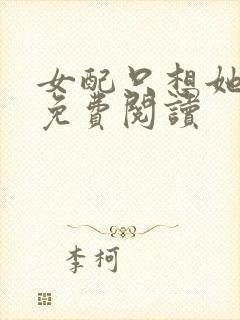 女配只想她
免費閱讀
李柯